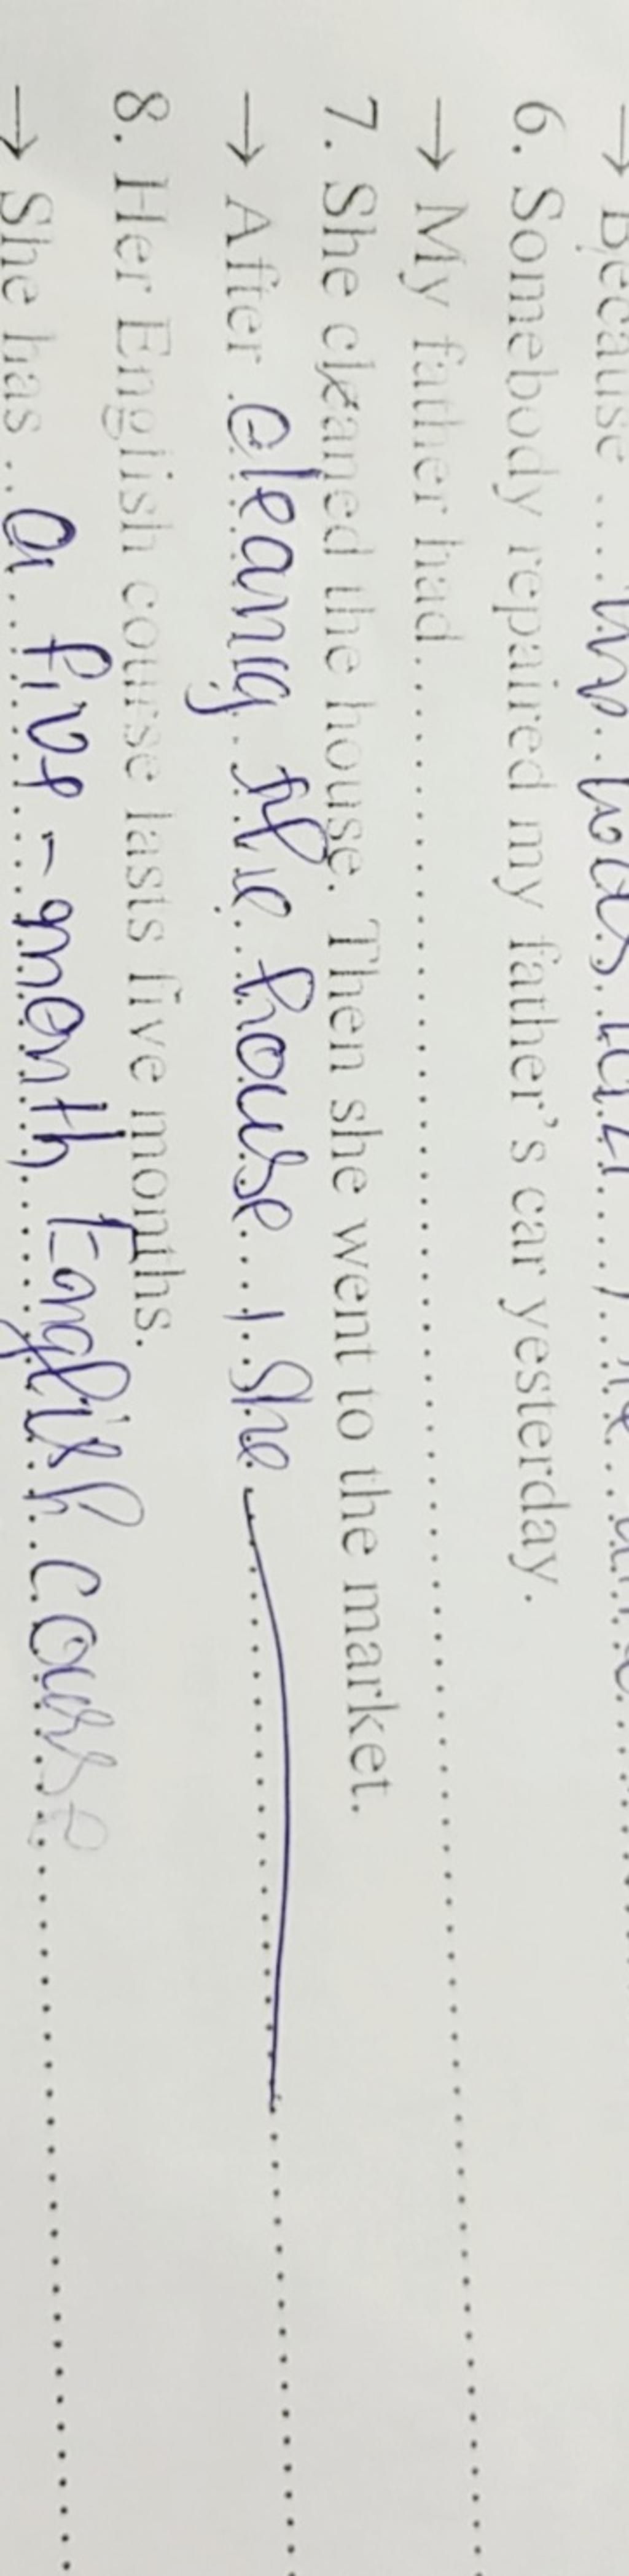 → Because .... was
6. Somebody repaired my father's car yesterday.
→ My father had..........
7. She cleaned the house. Then she went to the market.
→ After cleang the house, she
8. Her English course lasts five months.
→ She has a five-month English course